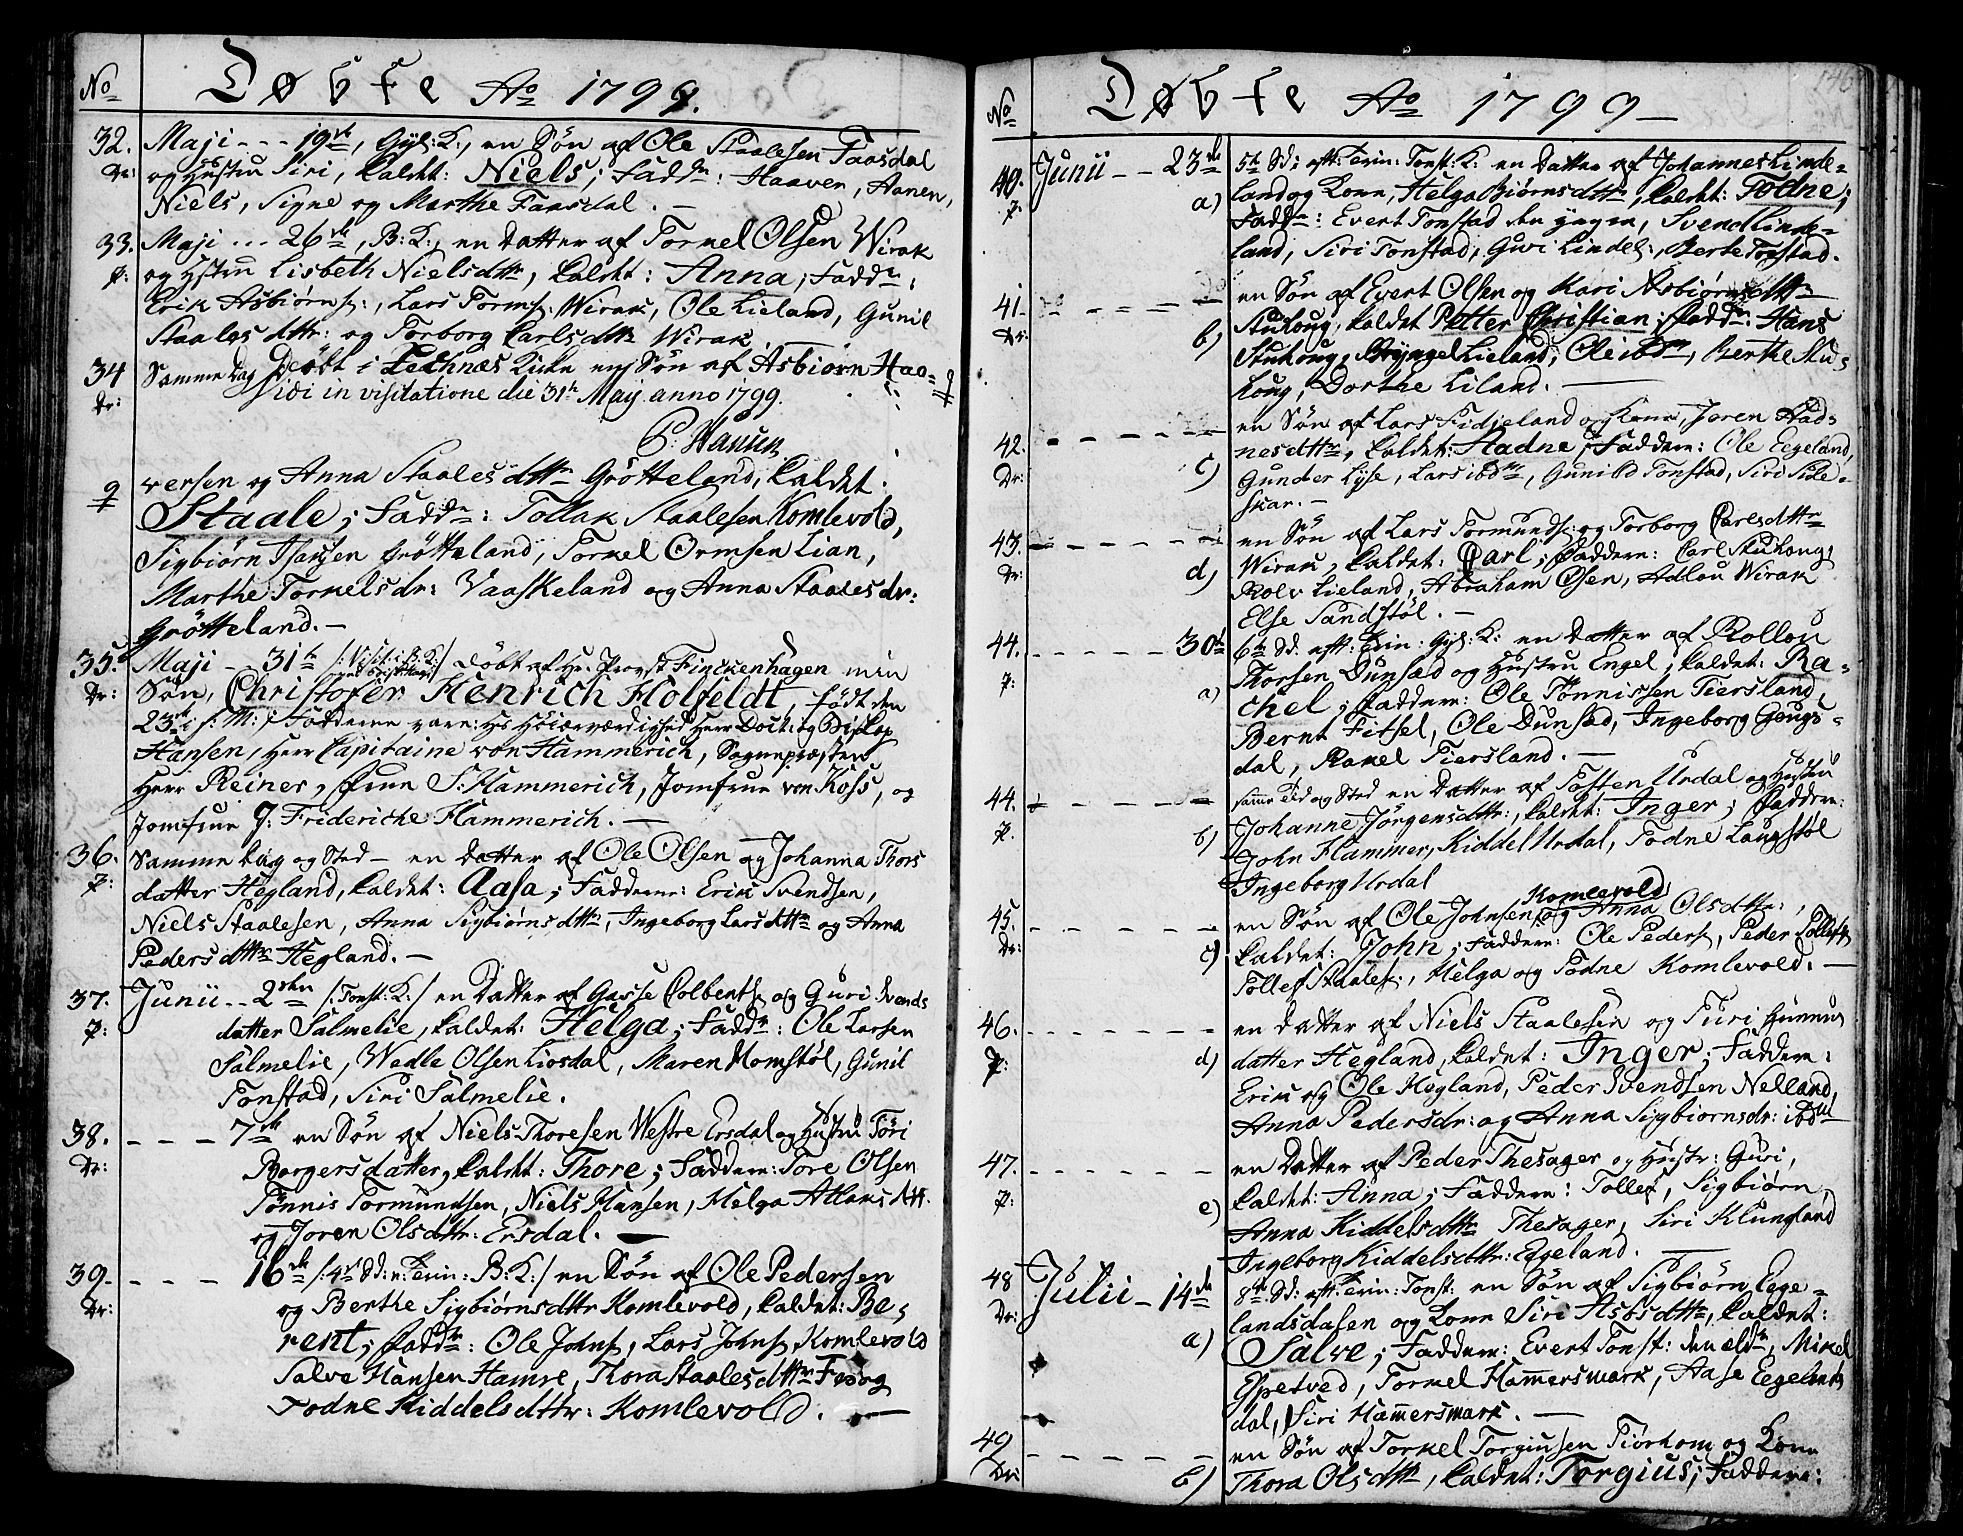 No Døbte Ao 1799.
32. Maji - - - 19de, Gyl: K:, en Søn af Ole Staalesen Faasdal
Dr: og Hustru Siri, kaldet: Niels; Fadd: Haaver, Aanen,
Niels, Signe og Marthe Faasdal. —
33. Maji - - - 26de, B: K:, en Datter af Tormel Olsen Wirak
p: og Hustru Lisbeth Nielsdttr, kaldet: Anna; Fadd:
Erik Asbiørns:, Lars Torms: Wirak, Ole Lieland, Gunil
Staalesdttr: og Torborg Carlsdttr Wirak.
34 Samme Dag Døbt i Fechnæs Kirke en Søn af Asbiørn Haa-
Dr: Vidi in visitatione die 31te Maij anno 1799.
P: Hansen
versen og Anna Staalesdttr Grøtteland, kaldet:
Staale; Fadd: Tollak Staalesen Komlevold,
Sigbiørn Grøtteland, Tormel Ormsen Lian,
Marthe Tormelsdr: Vaaskeland og Anna Staalesdr:
Grøtteland. —
35. Maji - 31te døbt af Hr: Provst Finckenhagen min
Dr: Søn, Christofer Henrich Holfeldt, født den
23de f: M:; Fadderne vare: Hs Høiærværdighed Herr Doct: og Biskop
Hansen, Herr Capitaine von Hammerich, Sognepræsten
Herr Reiner, Frue S: Hammerich, Jomfrue von Koss, og
Jomfrue J: Fridericke Hammerich. —
36. Samme Dag og Sted — en Datter af Ole Olsen og Johanna Thors
p: datter Hegland, kaldet: Aasa; Fadderne: Erik Svendsen,
Niels Staalesen, Anna Sigbiørnsdttr, Ingeborg Larsdttr og Anna
Pedersdttr Hegland. —
37. Junii - - 2den /: Tonst: K:/ en Datter af Gasse Colbents og Guri Svends
p: datter Salmelie, kaldet: Helga; Fadd: Ole Larsen
Salmelie, Wedle Olsen Liosdal, Maren Homstøl, Gunil
Tonstad, Siri Salmelie.
38. - - - 7de en Søn af Niels Thoresen Westre Ersdal og Hustru Tøri
Dr: Borgersdatter, kaldet: Thore; Fadderne: Tore Olsen
Tønnis Tormundsen, Niels Hansen, Helga Atlaksdttr.
og Joren Olsdttr: Ersdal. —
39. - - - 16de /: 4de Sd: n: Trin: B: K:/ en Søn af Ole Pedersen
Dr: og Berthe Sigbiørnsdttr Komlevold, kaldet: Be-
rent; Fadd: Ole Johns, Lars Johns Komlevold
Salve Hansen Hamre, Thora Staalesdttr og
Todne Kiddelsdttr: Komlevold. —
146
No Døbte Ao 1799 —
40. Junii - - 23de 5te Sd: aft: Trin: Tonst: K: en Datter af Johannes Linde-
p: a) land og Kone, Helga Biørnsdttr, kaldet: Todne;
Fadd: Evert Tonstad den yngre, Svend Linde-
land, Siri Tonstad, Guri Lindel:, Berte Tonstad.
41. - - - - en Søn af Evert Olsen og Kari Asbiørnsdttr
Dr: b) Stuhoug, kaldet Petter Christian; Fadd: Hans
Stuhoug, Bryngel Lieland, Ole ibdm, Berthe Stu-
houg, Dorthe Liland. —
42. - - - - en Søn af Lars Fidjeland og Kone, Joren Aad-
Dr: c) nesdttr, kaldet: Aadne; Fadderne: Ole Eegeland,
Gunder Lyse, Lars ibdm, Gunild Tonstad, Siri Side-
skar. —
43. - - - - en Søn af Lars Tormunds: og Torborg Carlsdttr
Dr: d) Wirak, kaldet: Carl; Fadderne: Carl Stuhoug,
Rolv Lieland, Abraham Osen, Adlou Wirak
Else Sandstøl. —
44. - - - - 30te 6te Sd: aft: Trin: Gyl: K: en Datter af Rollou
p: a) Thorsen Dunsæd og Hustru Engel, kaldet: Ra-
chel; Fadderne: Ole Tønnissen Tiersland,
Bernt Fitsel, Ole Dunsæd, Ingeborg Gougs-
dal, Rakel Tiersland. —
44. - - - - samme Tid og Sted en Datter af Tosten Urdal og Hustru
p: b) Johanne Jørgensdttr:, kaldet: Inger; Fadderne:
John Hammer, Kiddel Urdal, Todne Laugstøl
Ingeborg Urdal
45. - - - - en Søn af Ole Johnsen Komlevold og Anna Olsdttr:,
Dr: c) kaldet: John; Fadderne: Ole Peders, Peder Tollefs
Tollef Staales:, Helga og Todne Komlevold. —
46. - - - - en Datter af Niels Staalesen og Turi Gunnus
p: d) datter Hegland, kaldet: Inger; Fadderne:
Erik og Ole Hegland, Peder Svendsen Nelland,
Anna Pedersdr: og Anna Sigbiornsdr: ibdm
47. - - - - en Datter af Peder Thesager og Hustr: Guri,
p: e) kaldet: Anna; Fadderne: Tollef, Sigbiørn,
Anna Kiddelsdttr Thesager, Siri Klungland
Ingeborg Kiddelsdttr: Egeland. —
48 Julii - 14de 8de Sd: aft: Trin: Tonst: en Søn af Sigbiørn Eege-
Dr: a) landsdalen og Kone Siri Asbsdttr, kaldet:
Salve; Fadderne: Evert Tonst: den eldr, Mikel
Espetved, Tormel Hamersmark, Aase Eegelands
dal, Siri Hamersmark. —
49 - - - - en Søn af Tormel Torgiusen Tiørhom og Kone
Dr: b) Thora Olsdttr, kaldet: Torgius; Fadderne: